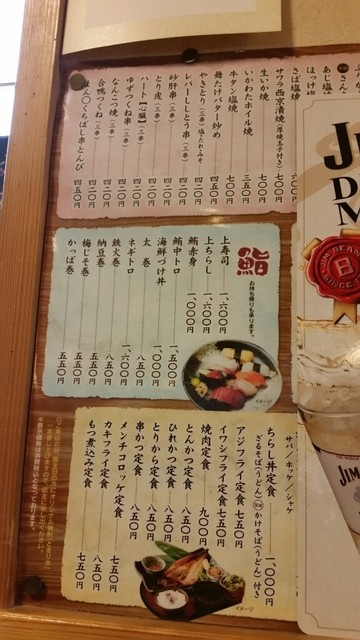 さば塩焼
サワラ西京漬焼(厚焼玉子付き) 七〇〇円
生いか焼 七〇〇円
いかわたホイル焼 三五〇円
牛タン塩焼 七〇〇円
舞たけバター炒め 四五〇円
やきとり(三串)塩・たれ・みそ 四二〇円
レバーししとう串(三串) 四二〇円
砂肝串(三串) 四二〇円
とり皮(三串) 四二〇円
ハート【心臓】(三串) 四二〇円
ゆずつくね串(三串) 四二〇円
なんこつ焼(三串) 四二〇円
合鴨つくね(三串) 四二〇円
四五〇円
鮨
お持ち帰りも承ります。
上寿司 一、六〇〇円
上ちらし 一、六〇〇円
鮪赤身 一、〇〇〇円
鮪中トロ 一、五〇〇円
海鮮づけ丼
太巻 八五〇円
ネギトロ 一、六〇〇円
鉄火巻 八五〇円
納豆巻 五五〇円
梅じそ巻 五五〇円
かっぱ巻 五五〇円
イメージ
サバ/ホッケ/シャケ
ちらし丼定食 一、〇〇〇円
ざるそば(うどん)又はかけそば(うどん)付き
アジフライ定食 七五〇円
イワシフライ定食 七五〇円
焼肉定食 九〇〇円
とんかつ定食 八五〇円
ひれかつ定食 八五〇円
とりから定食 八五〇円
串かつ定食 八五〇円
メンチコロッケ定食 七五〇円
カキフライ定食 八五〇円
もつ煮込み定食 七五〇円
イメージ
※表示価格は消費税込となっております。
JIM BEAM
B
SINCE
JIM